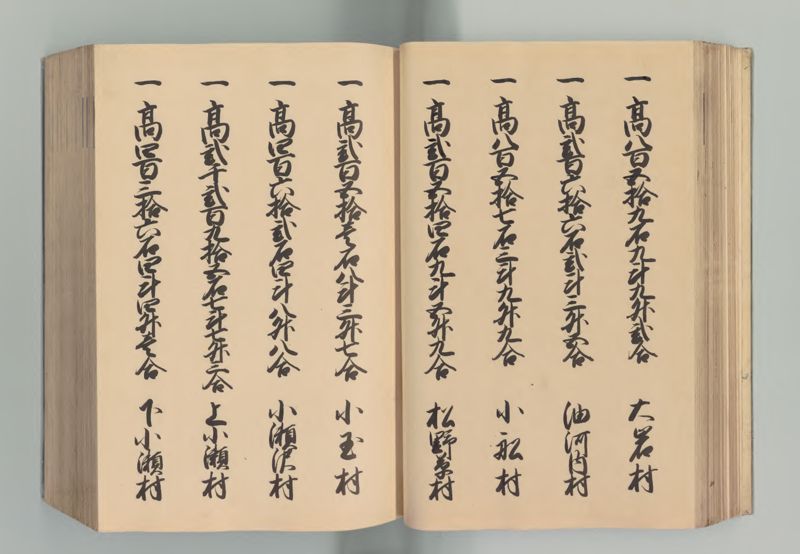 一 高八百五拾九石九斗九升弐合 大岩村
一 高弐百六拾六石弐斗三升五合 油河内村
一 高八百五拾七石三斗九升九合 小舩村
一 高弐百五拾四石九斗五升九合 松野草村
一 高弐百五拾壱石八斗三升七合 小玉村
一 高四百六拾弐石四斗八升八合 小瀬沢村
一 高弐千弐百九拾五石七斗七升三合 上小瀬村
一 高四百三拾六石四斗四升壱合 下小瀬村